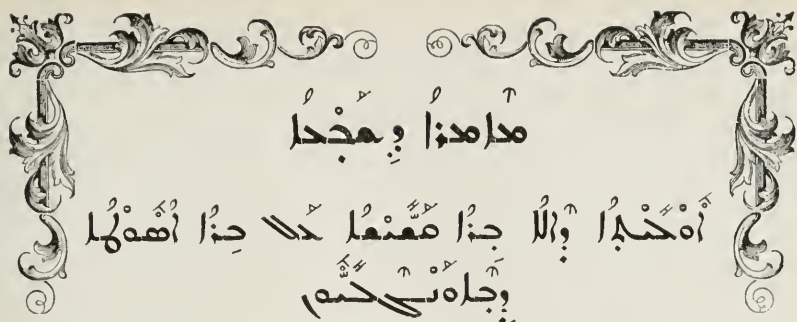 ܡܐܡܪܐ ܕܫܒܥܐ
ܐܘܠܝܬܐ ܕܐܠܐ ܒܪܐ ܩܫܝܫܐ ܥܠ ܒܪܐ ܐܣܘܛܐ
ܕܒܐܘܢܓܠܝܘܢ